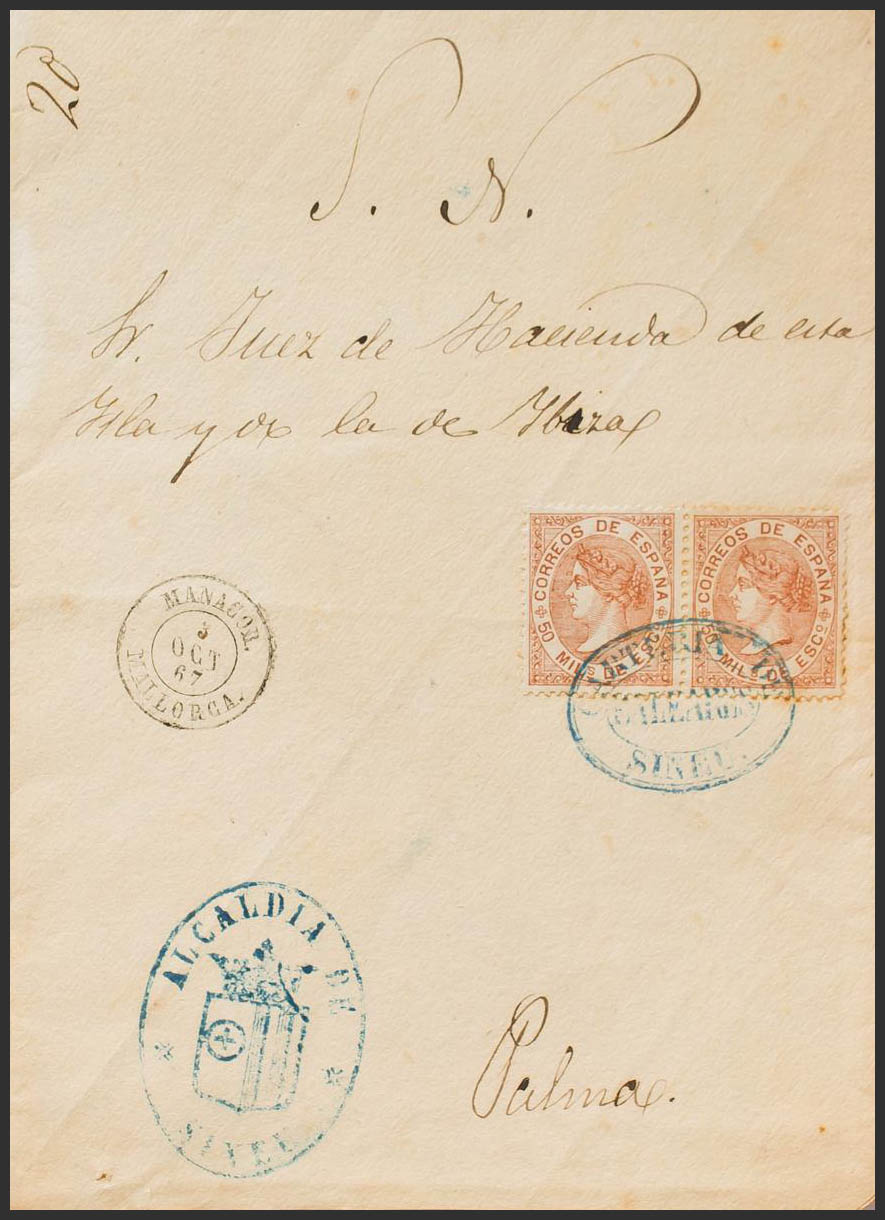 20
S. N.
Sr. Juez de Hacienda de esta
Isla y de la de Ibiza
CORREOS DE ESPAÑA
50 MILS DE ESCO
CORREOS DE ESPAÑA
50 MILS DE ESCO
MANACOR.
3
OCT
67
MALLORCA.
CARTERIA DE
SINEU.
ALCALDIA DE
SINEU
Palma.